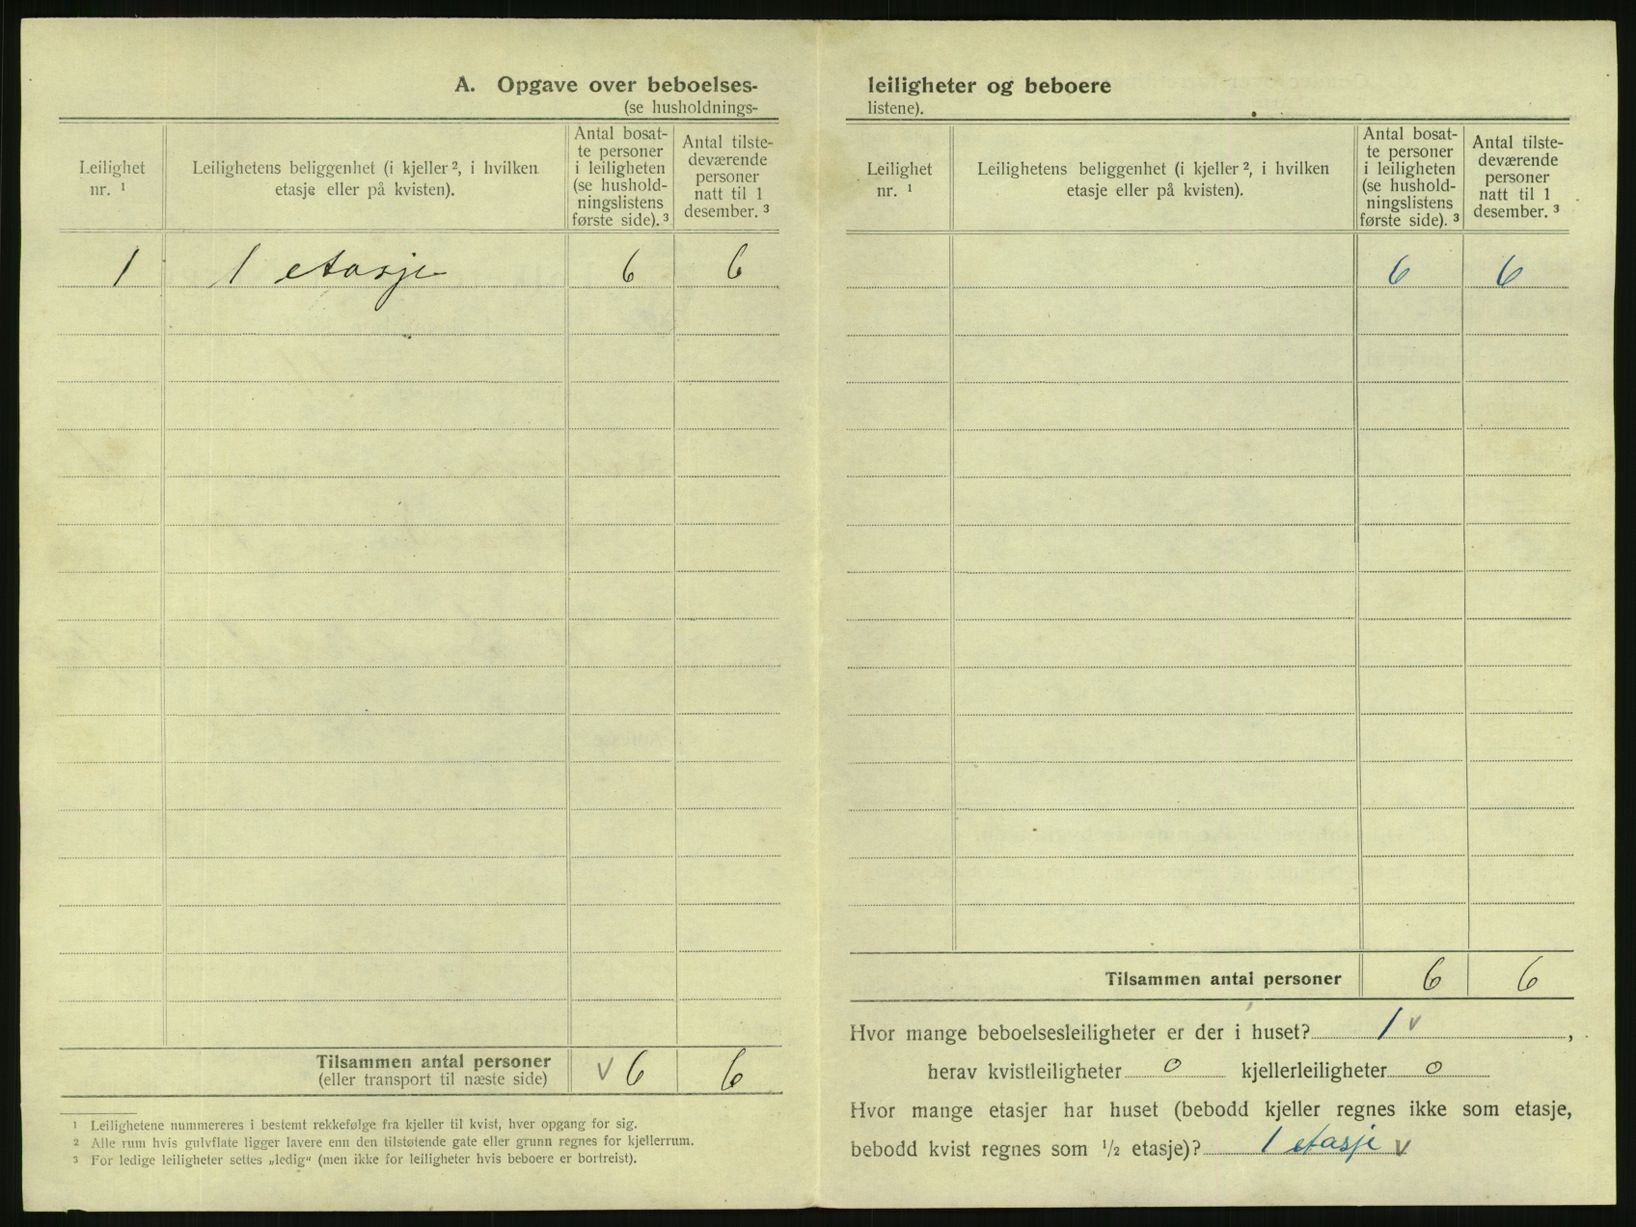 A. Opgave over beboelses-
(se husholdnings-
Leilighet nr. 1
Leilighetens beliggenhet (i kjeller 2, i hvilken
etasje eller på kvisten).
Antal bosat-
te personer
i leiligheten
(se hushold-
ningslistens
første side). 3
Antal tilste-
deværende
personer
natt til 1
desember. 3
1 1 etasje 6 6
Tilsammen antal personer
(eller transport til næste side)
v 6 6
1 Leilighetene nummereres i bestemt rekkefølge fra kjeller til kvist, hver opgang for sig.
2 Alle rum hvis gulvflate ligger lavere enn den tilstøtende gate eller grunn regnes for kjellerrum.
3 For ledige leiligheter settes „ledig“ (men ikke for leiligheter hvis beboere er bortreist).
leiligheter og beboere
listene).
Leilighet nr. 1
Leilighetens beliggenhet (i kjeller 2, i hvilken
etasje eller på kvisten).
Antal bosat-
te personer
i leiligheten
(se hushold-
ningslistens
første side). 3
Antal tilste-
deværende
personer
natt til 1
desember. 3
6 6
Tilsammen antal personer 6 6
Hvor mange beboelsesleiligheter er der i huset? 1 v,
herav kvistleiligheter 0 kjellerleiligheter 0
Hvor mange etasjer har huset (bebodd kjeller regnes ikke som etasje,
bebodd kvist regnes som 1/2 etasje)? 1 etasje v